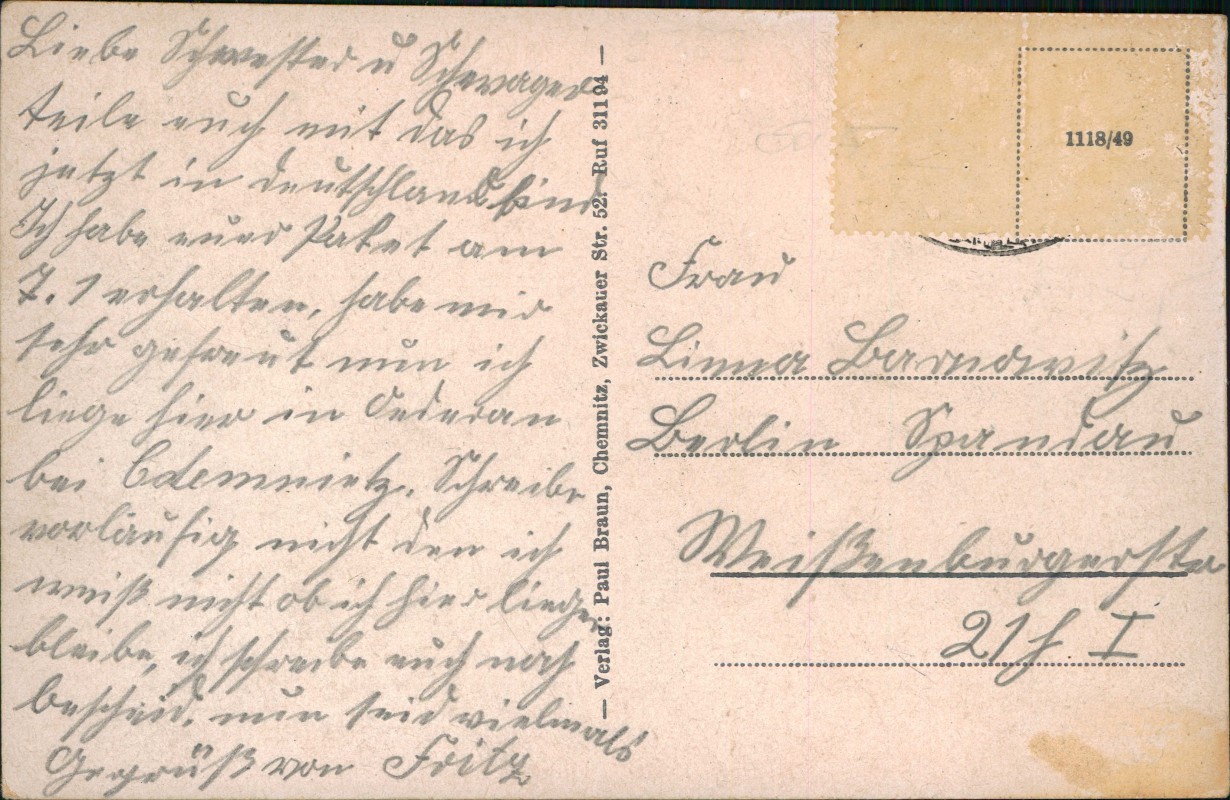 Liebe Schwester u Schwager
teile euch mit das ich
jetzt in Deutschland bin
Ich habe euer Paket am
7. 1 erhalten, habe mir
sehr gefreut nun ich
liege hier in Oederan
bei Cdemnietz. Schreibe
vorläufig nicht den ich
weiß nicht ob ich hier liegen
bleibe, ich schreibe euch noch
bescheid. nun seid vielmals
Gegrüß von Fritz
— Verlag: Paul Braun, Chemnitz, Zwickauer Str. 52. Ruf 31194 —
1118/49
Frau
Linna Barnowitz
Berlin Spandau
Weißenburgerstr
21 f I